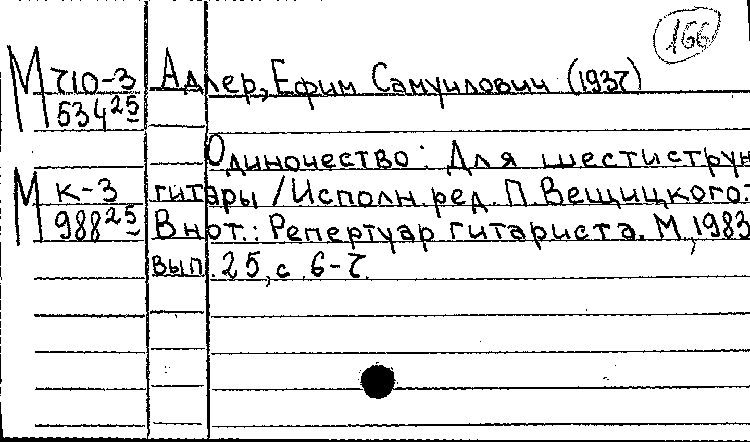 166
М 710-3 Адлер, Ефим Самуилович (1937)
534 25
Одиночество: Для шестиструн
М К-3 гитары / Исполн. ред. П. Вещицкого.
988 25 В нот.: Репертуар гитариста. М., 1983
вып. 25, с. 6-7.